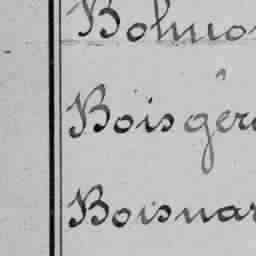 Bolmon
Boisgér
Boisnar